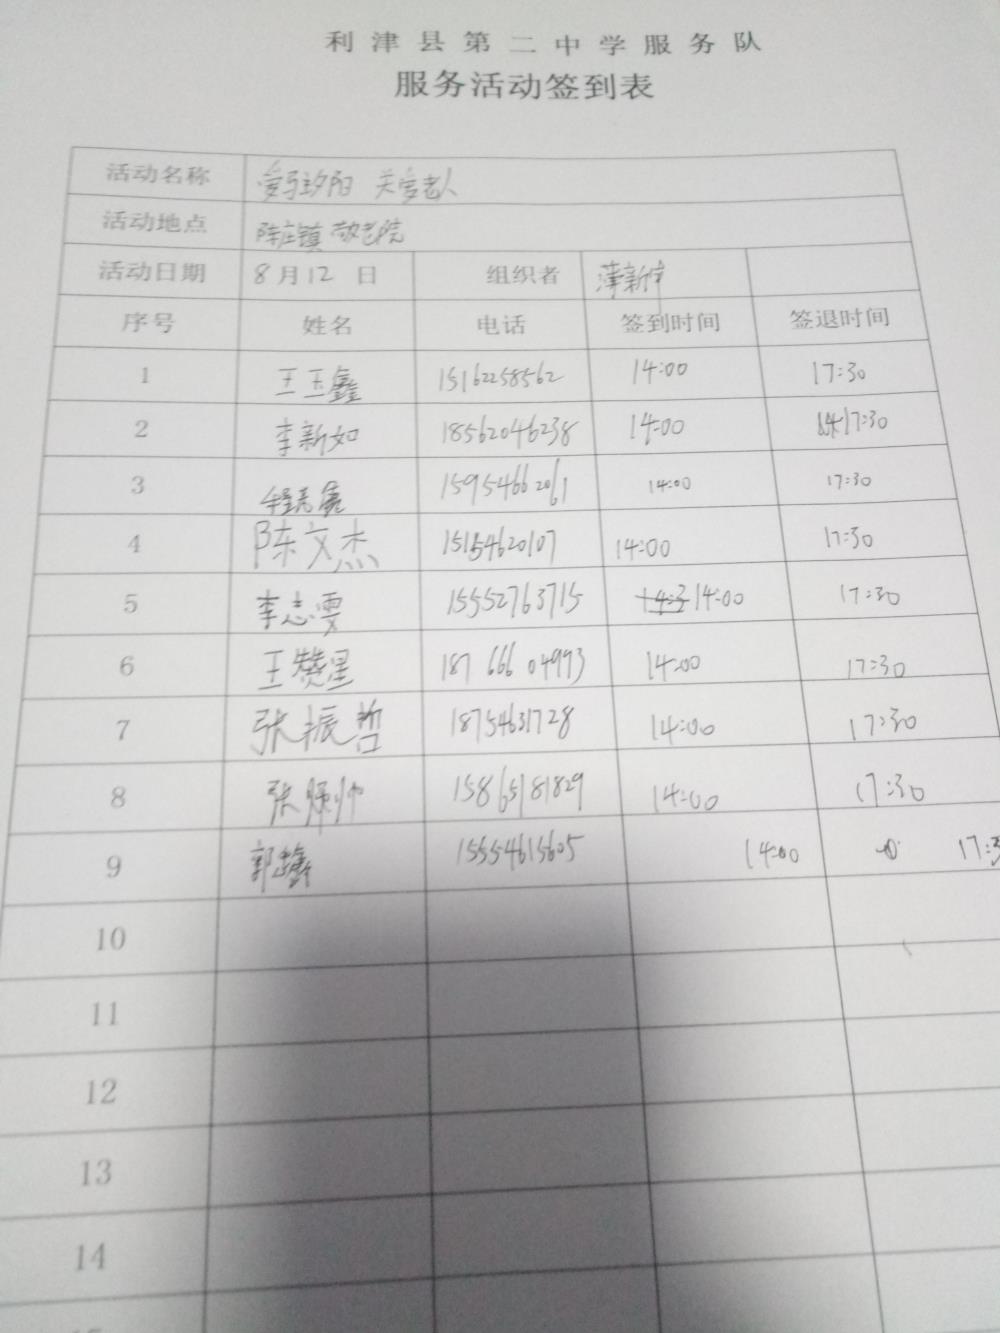 利津县第二中学服务队
服务活动签到表
活动名称 爱与夕阳 关爱老人
活动地点 陈庄镇 敬老院
活动日期 8月12日 组织者 薄新宇
序号 姓名 电话 签到时间 签退时间
1 王玉鑫 15162258562 14:00 17:30
2 李新如 18562046238 14:00 17:30
3 15954662061 14:00 17:30
4 陈文杰 15154620107 14:00 17:30
5 李志雯 15552763715 14:00 17:30
6 王赞星 18766604993 14:00 17:30
7 张振哲 18754631728 14:00 17:30
8 张 帅 15865181829 14:00 17:30
9 郭 15554615605 14:00 17:3
10
11
12
13
14